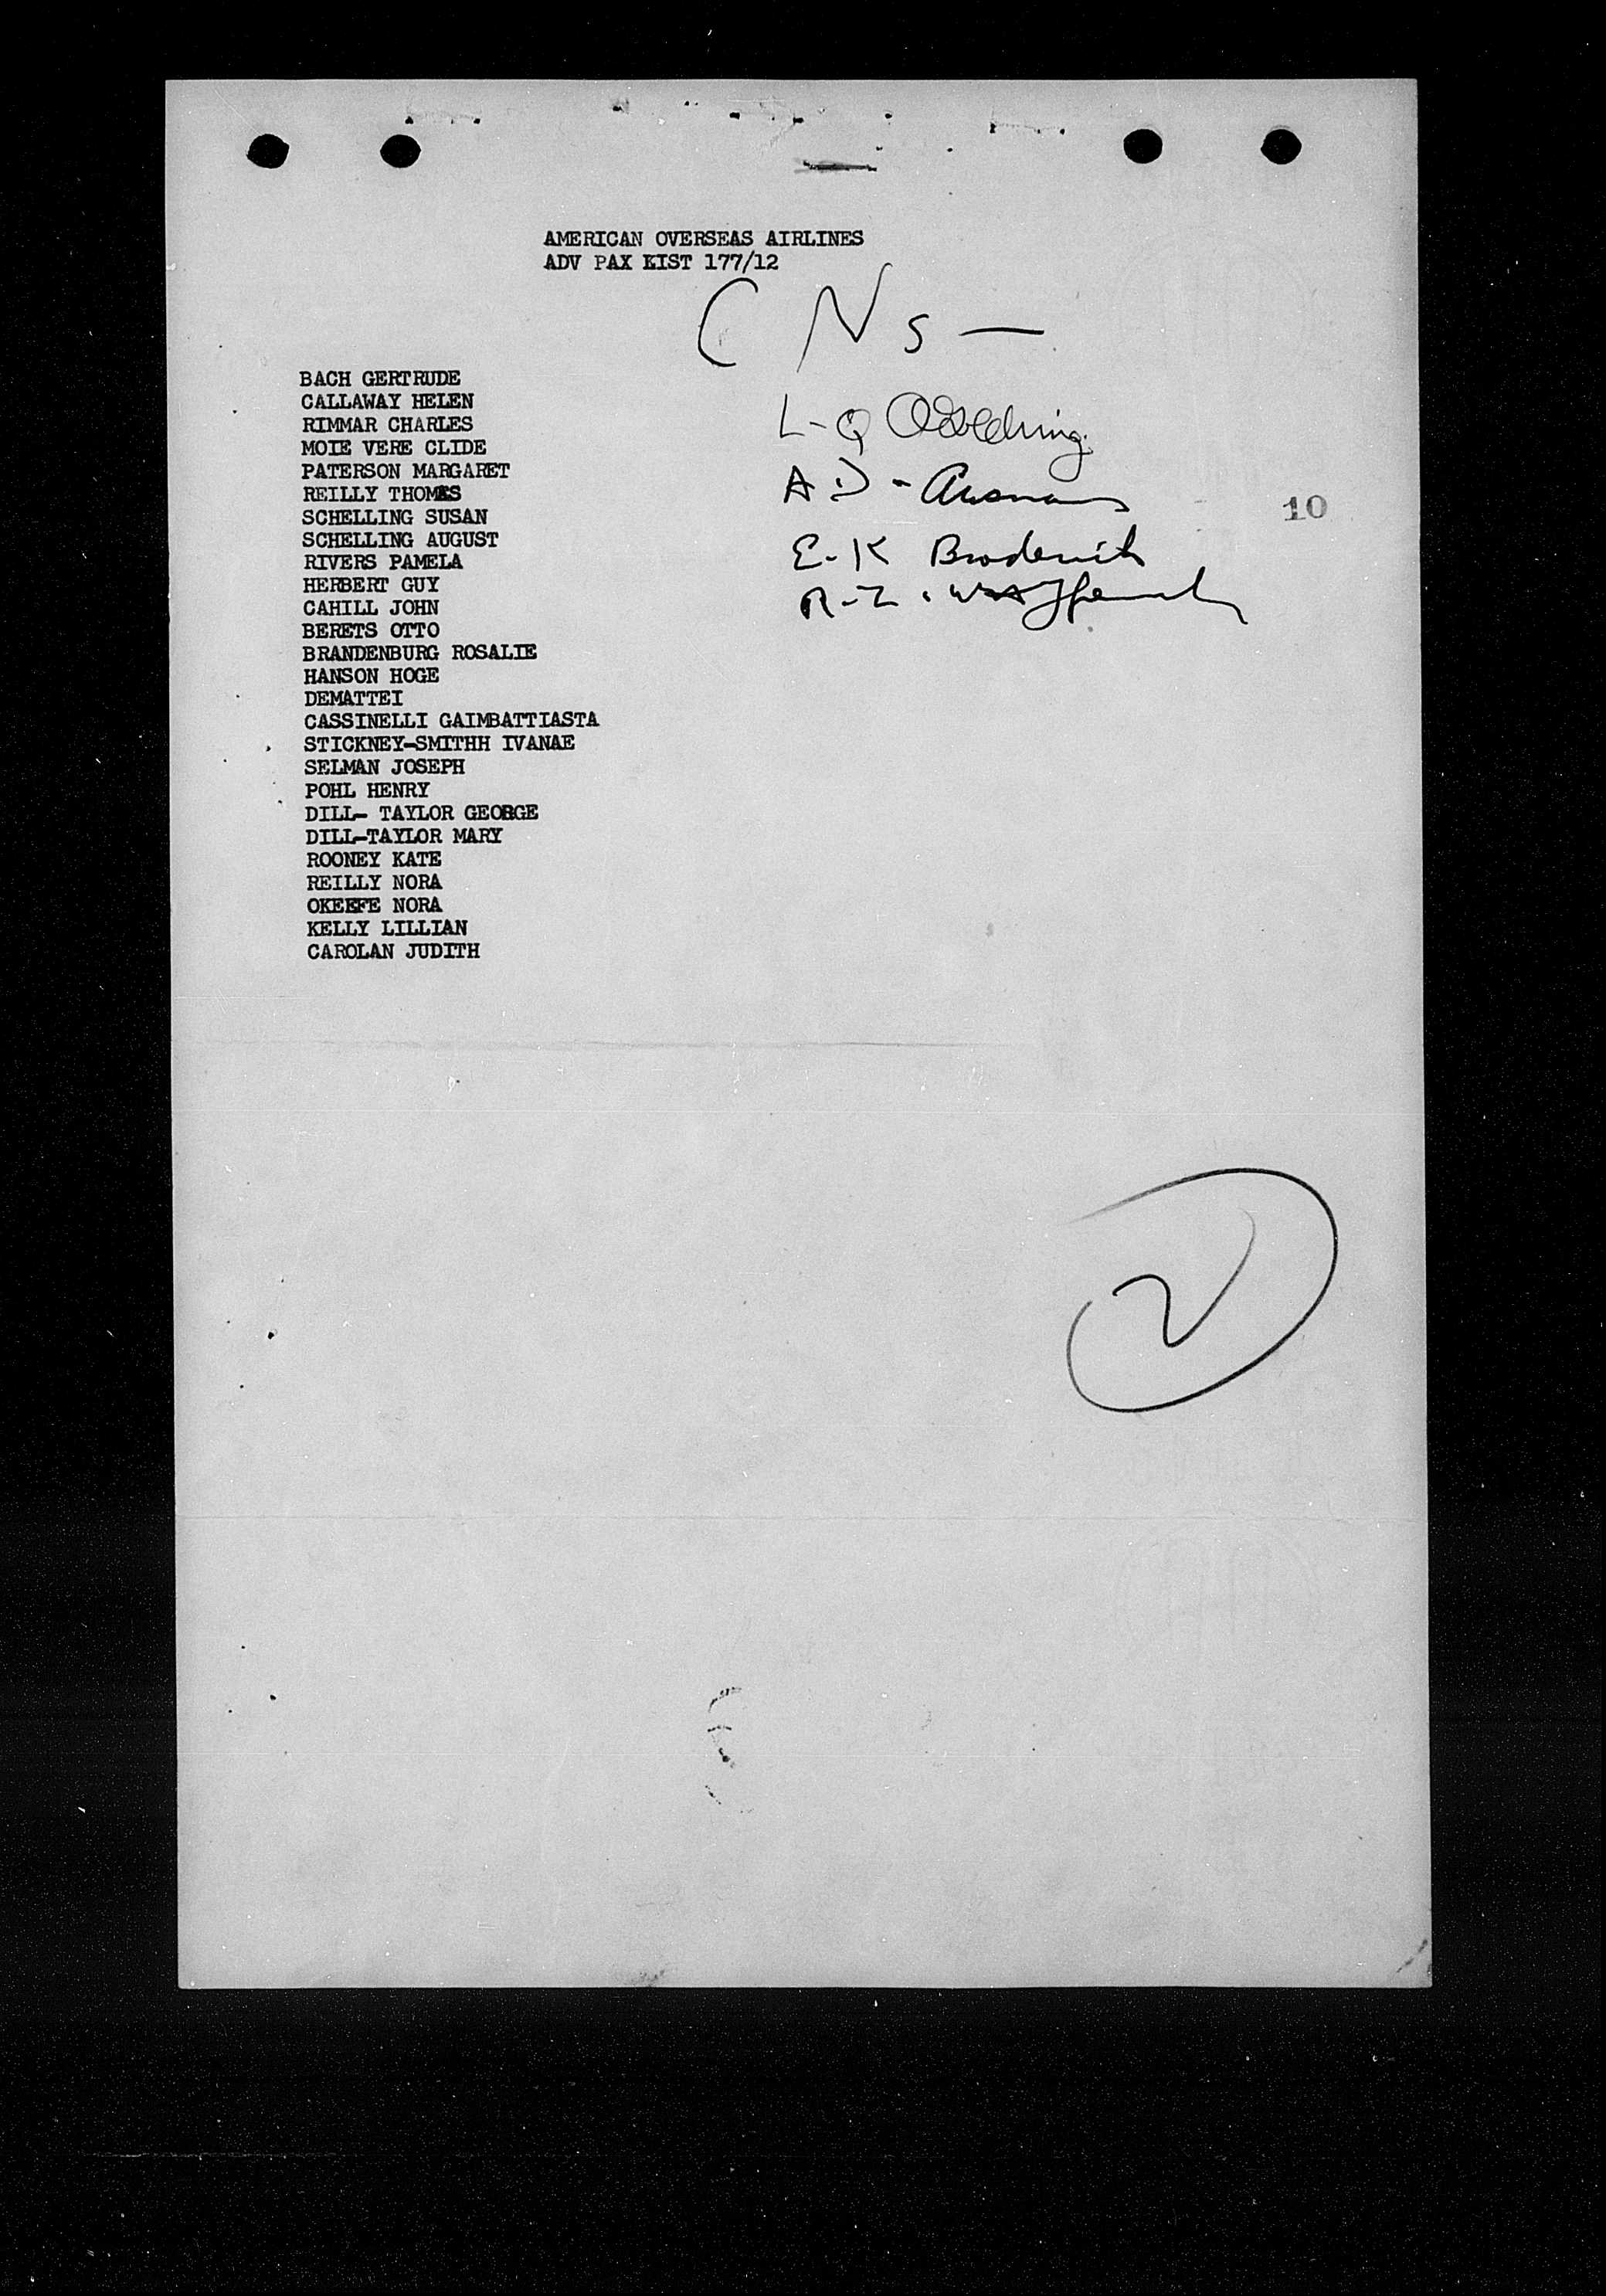 AMERICAN OVERSEAS AIRLINES
ADV PAX LIST 177/12
C N s —
BACH GERTRUDE
CALLAWAY HELEN
RIMMAR CHARLES
MOIE VERE CLIDE
PATERSON MARGARET
REILLY THOMAS
SCHELLING SUSAN
SCHELLING AUGUST
RIVERS PAMELA
HERBERT GUY
CAHILL JOHN
BERETS OTTO
BRANDENBURG ROSALIE
HANSON HOGE
DEMATTEI
CASSINELLI GAIMBATTIASTA
STICKNEY-SMITHH IVANAE
SELMAN JOSEPH
POHL HENRY
DILL- TAYLOR GEORGE
DILL-TAYLOR MARY
ROONEY KATE
REILLY NORA
OKEEFE NORA
KELLY LILLIAN
CAROLAN JUDITH
L-Q
A-D -
E-K Broderick
R-Z
10
2